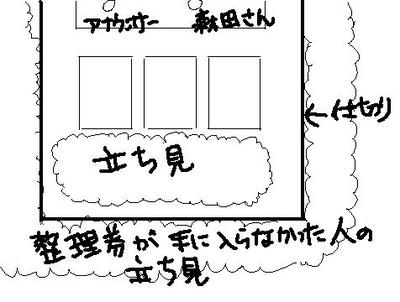 アナウンサー 森田さん
←仕切り
立ち見
整理券が手に入らなかった人の
立ち見